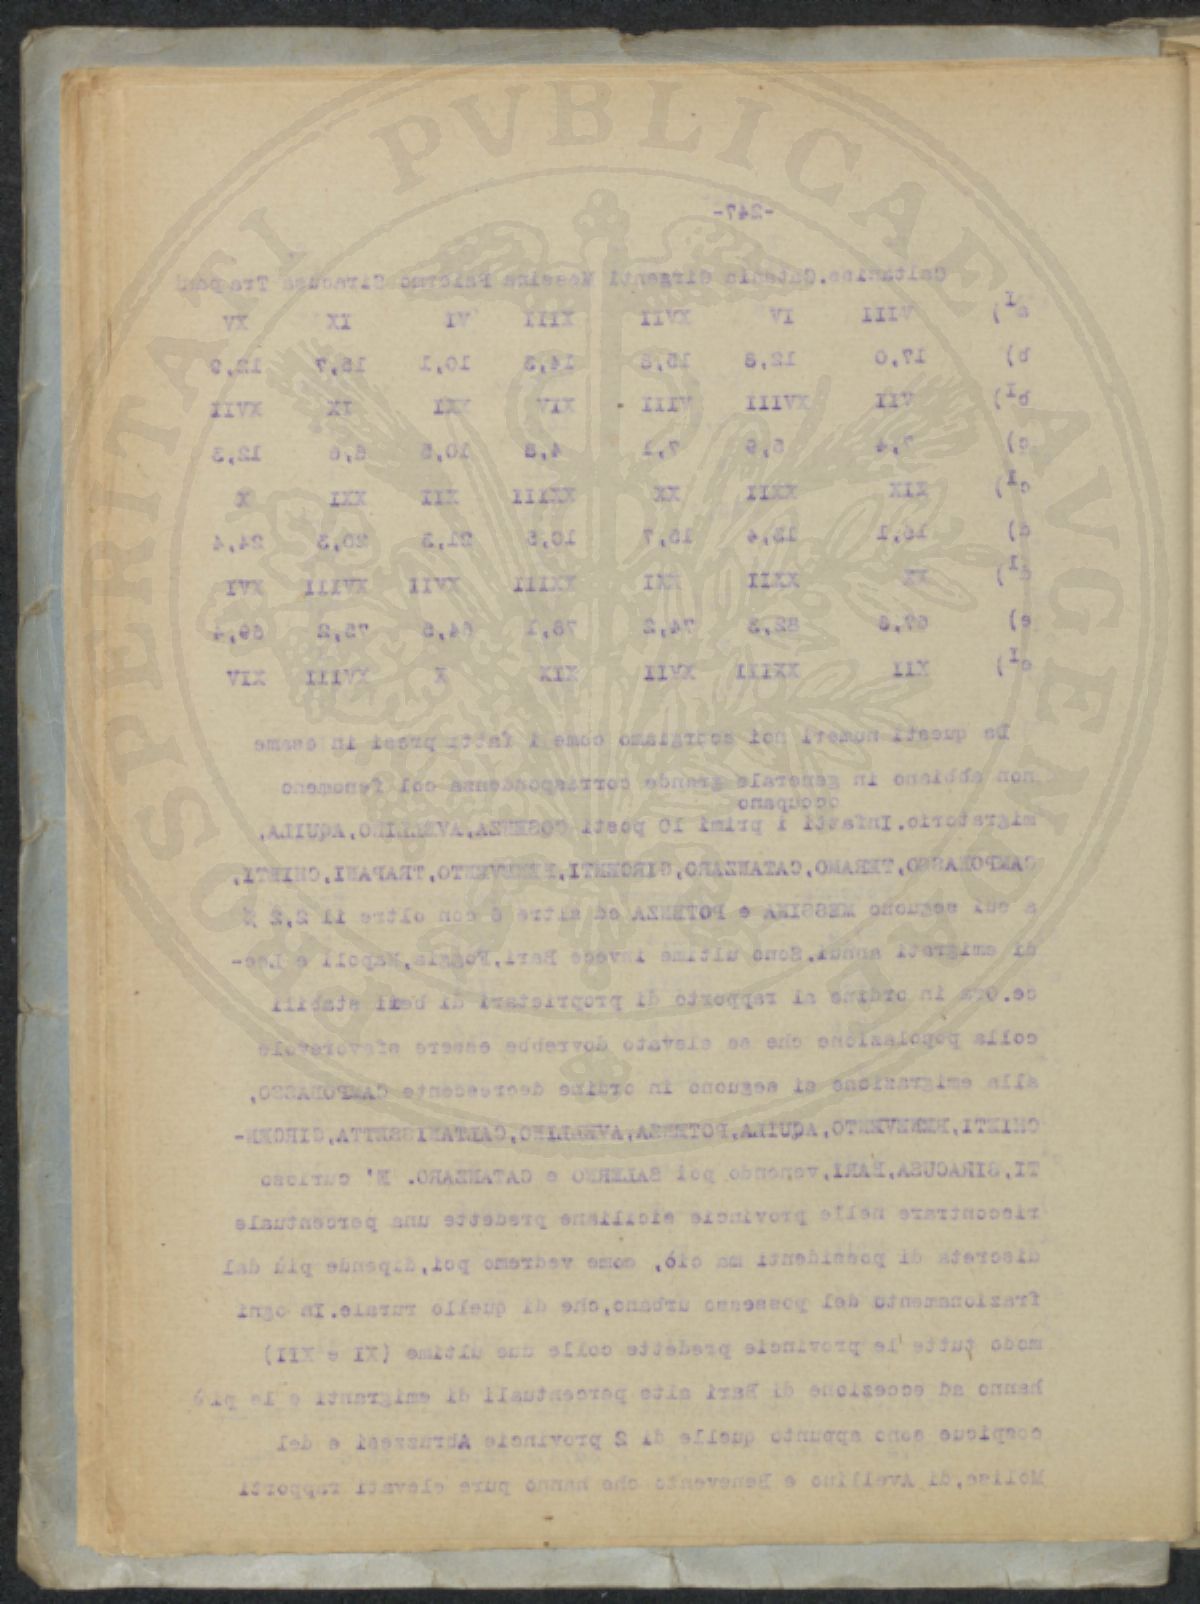 -247-
Caltaniss. Catania Girgenti Messina Palermo Siracusa Trapani
aI) VIII IV XVII XIII VI IX XV
b) 17,0 12,8 15,8 14,3 10,1 15,7 12,9
bI) VII XVIII VIII XIV XXI IX XVII
c) 7,4 5,9 7,1 4,8 10,5 6,6 12,3
cI) XIX XXII XX XXIII XII XXI X
d) 16,1 13,4 15,7 10,5 21,3 20,3 24,4
dI) XX XXII XXI XXIII XVII XVIII XVI
e) 67,8 82,3 74,2 78,1 64,5 75,2 69,4
eI) XII XXIII XVII XIX X XVIII XIV
Da questi numeri noi scorgiamo come i fatti presi in esame
non abbiano in generale grande corrispondenza col fenomeno
occupano
migratorio. Infatti i primi 10 posti COSENZA, AVELLINO, AQUILA,
CAMPOBASSO, TERAMO, CATANZARO, GIRGENTI, BENEVENTO, TRAPANI, CHIETI,
a cui seguono MESSINA e POTENZA ed altre 6 con oltre il 2,2 %
di emigrati annui. Sono ultime invece Bari, Foggia, Napoli e Lec-
ce. Ora in ordine al rapporto di proprietari di beni stabili
colla popolazione che se elevato dovrebbe essere sfavorevole
alla emigrazione si seguono in ordine decrescente CAMPOBASSO,
CHIETI, BENEVENTO, AQUILA, POTENZA, AVELLINO, CALTANISSETTA, GIRGEN-
TI, SIRACUSA, BARI, venendo poi SALERNO e CATANZARO. E' curioso
riscontrare nelle provincie siciliane predette una percentuale
discreta di possidenti ma ciò, come vedremo poi, dipende più dal
frazionamento del possesso urbano, che di quello rurale. In ogni
modo tutte le provincie predette colle due ultime (XI e XII)
hanno ad eccezione di Bari alte percentuali di emigranti e le più
cospicue sono appunto quelle di 2 provincie Abruzzesi e del
Molise, di Avellino e Benevento che hanno pure elevati rapporti
SPERITATI PVBLICAE AVGEN